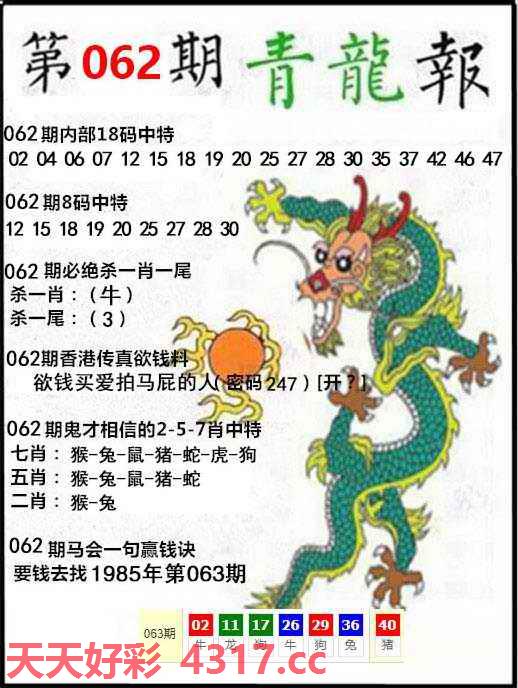 第062期青龍報
062期内部18码中特
02 04 06 07 12 15 18 19 20 25 27 28 30 35 37 42 46 47
062期8码中特
12 15 18 19 20 25 27 28 30
062期必绝杀一肖一尾
杀一肖：(牛)
杀一尾：(3)
062期香港传真欲钱料
欲钱买爱拍马屁的人(密码247)[开?]
062期鬼才相信的2-5-7肖中特
七肖：猴-兔-鼠-猪-蛇-虎-狗
五肖：猴-兔-鼠-猪-蛇
二肖：猴-兔
062期马会一句赢钱诀
要钱去找1985年第063期
063期 02 11 17 26 29 36 40
牛 龙 狗 牛 狗 兔 猪
天天好彩 4317.cc